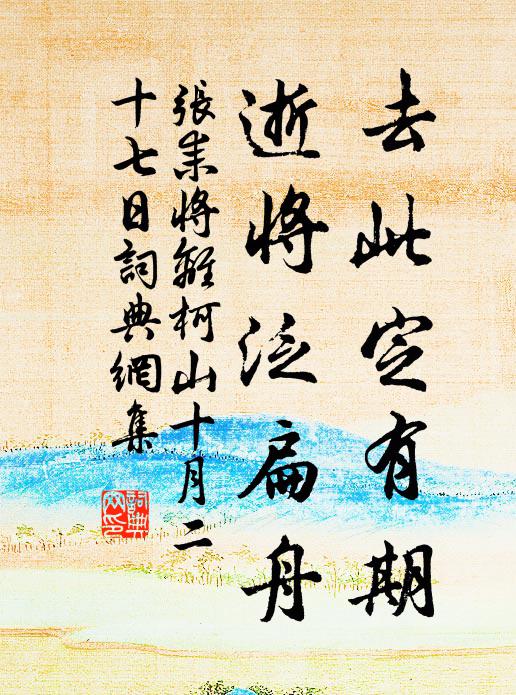 去此定有期
逝將泛扁舟
張耒將離柯山十月二
十七日詞典網集
詞典
网印